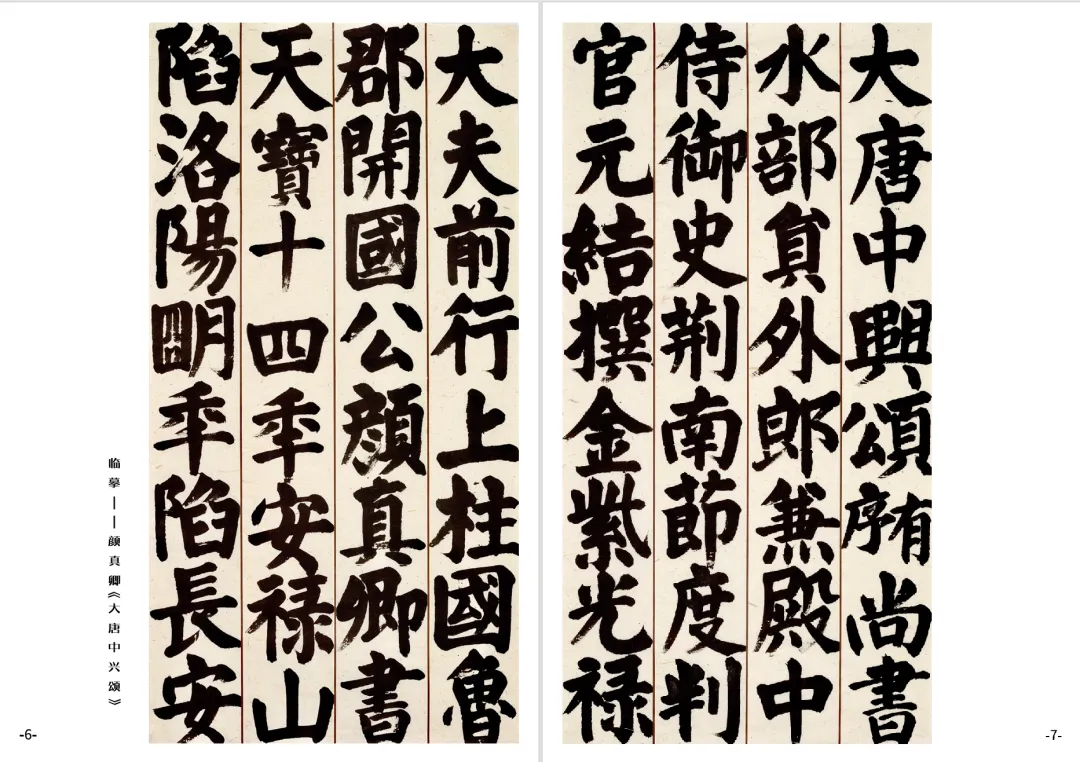 大唐中興頌有序尚書
水部員外郎兼殿中
侍御史荆南節度判
官元結撰金紫光禄
大夫前行上柱國魯
郡開國公顏真卿書
天寶十四年安禄山
陷洛陽明年陷長安
临摹——颜真卿《大唐中兴颂》
-6-
-7-